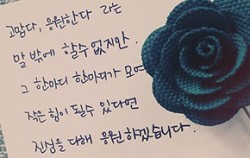 고맙다, 응원한다 라는
말 밖에 할수 없지만.
그 한마디 한마디가 모여
작은 힘이 될수 있다면
진심을 다해 응원하겠습니다.